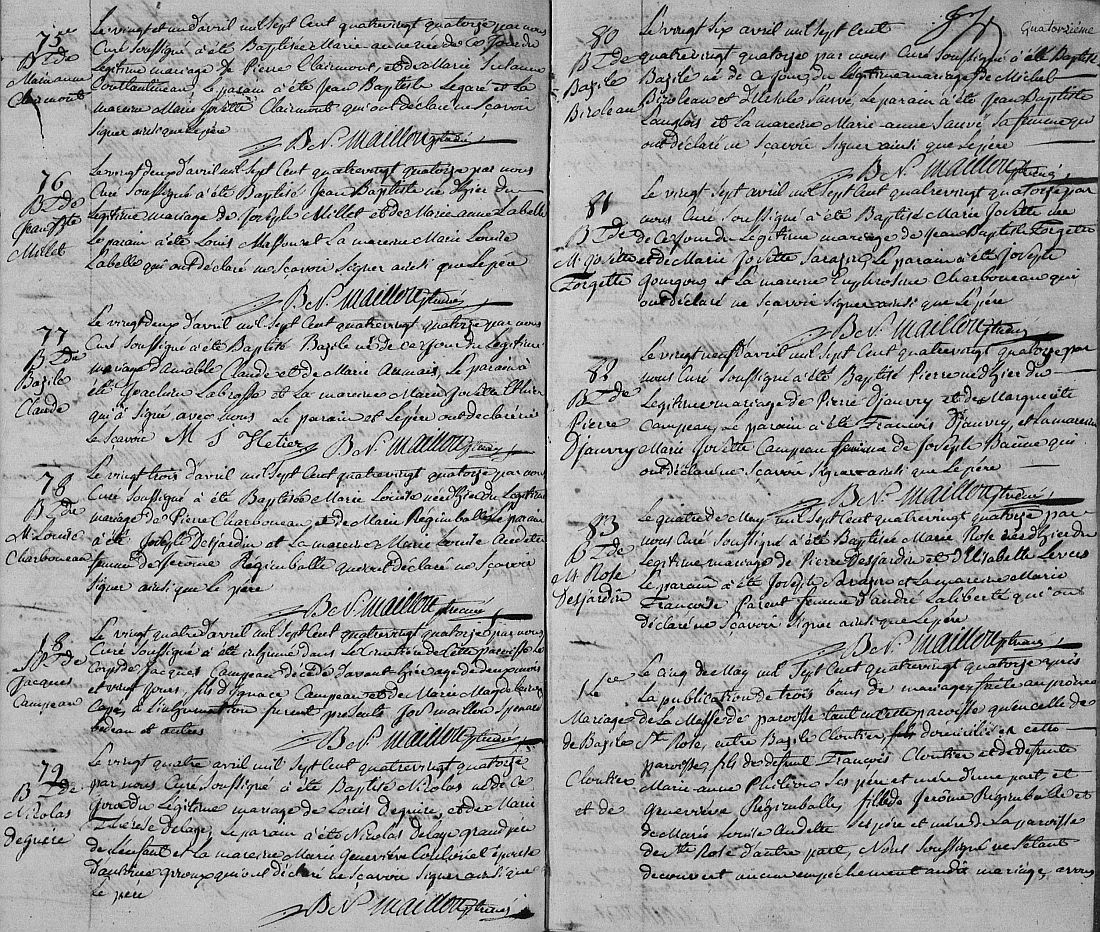 75e
Bt de
Marianne
Clairmont
Le vingt et un d'avril mil Sept Cent quatrevingt quatorze par nous
Curé Soussigné à été Baptisée Marie anne née de ce jour du
Legitime mariage de Pierre Clairmont, et de Marie Susanne
Le parain a été Jean Baptiste Legaré et La
mareine Marie Josette Clairmont qui ont déclaré ne Scavoir
Signer ainsi que Le père
B N. Maillou ptre curé
76
Bt de
Jean Bte
Millet
Le vingt deux d'avril mil Sept Cent quatrevingt quatorze par nous
Curé Soussigné à été Baptisé Jean Baptiste né d'hier du
Legitime mariage de Joseph Millet et de Marie anne Labelle
Le parain a été Louis et La mareine Marie Louise
Labelle qui ont déclaré ne Scavoir Signer ainsi que Le père
B N. Maillou ptre curé
77
Bt de
Bazile
Claude
Le vingt deux d'avril mil Sept Cent quatrevingt quatorze par nous
Curé Soussigné à été Baptisé Bazile né de ce jour du Legitime
mariage d'amable Claude et de Marie Le parain à
été Joachim Labrosse et La mareine Marie Josette
qui à Signé avec nous Le parain et Le père ont déclaré ne
Le Scavoir M J Hetier B N. Maillou ptre curé
78
Bt de
M. Louise
Charboneau
Le vingt trois d'avril mil Sept Cent quatrevingt quatorze par nous
Curé Soussigné à été Baptisée Marie Louise née d'hier du Legitime
mariage de Pierre Charboneau et de Marie Régimballe Le parain
à été Joseph Desjardin et La mareine Marie Louise Audette
femme de Jerome Régimballe qui ont déclaré ne Scavoir
Signer ainsi que Le père
B N. Maillou ptre curé
18
Sp. de
Jacques
Campeau
Le vingt quatre d'avril mil Sept Cent quatrevingt quatorze par nous
Curé Soussigné a été inhumé dans Le Cimetière de Cette paroisse Le
corps de Jacques Campeau décédé d'avant hier agé de deux mois
et vingt jours, fils d'Ignace Campeau et de Marie Magdeleine
à L'inhumation furent présents Jos maillou
et autres
B N. Maillou ptre curé
79
Bt de
Nicolas
deguire
Le vingt quatre avril mil Sept Cent quatrevingt quatorze
par nous Curé Soussigné à été Baptisé Nicolas né de Ce
jour du Légitime mariage de Louis deguire, et de Marie
Thérèse delage, Le parain a été Nicolas delage grand père
de L'enfant et La mareine Marie Geneviève épouse
d'antoine qui ont déclaré ne Scavoir Signer ainsi que
Le père
B N. Maillou ptre curé
87
Quatorzième
80
Bt de
Bazile
Biroleau
Le vingt Six avril mil Sept Cent
quatrevingt quatorze par nous Curé Soussigné à été Baptisé
Bazile né de Ce jour du Légitime mariage de Michel
Biroleau et d'Ursule Sauvé, Le parain a été Jean Baptiste
Langlois et La mareine Marie anne Sauvé Sa femme qui
ont déclaré ne Scavoir Signer ainsi que Le père
B N. Maillou ptre curé
81
Bt de
M. Josette
Forgette
Le vingt Sept avril mil Sept Cent quatrevingt quatorze par
nous Curé Soussigné à été Baptisé Marie Josette née
de Ce jour du Legitime mariage de Jean Baptiste Forgette
et de Marie Josette Sarasin, Le parain à été Joseph
Gourgon et La mareine Euphrosine Charboneau qui
ont déclaré ne Scavoir Signer ainsi que Le père
B N. Maillou ptre curé
82
Bt de
Pierre
Djauvry
Le vingt neuf d'avril mil Sept Cent quatrevingt quatorze par
nous Curé Soussigné à été Baptisé Pierre né d'hier du
Legitime mariage de Pierre Djauvry et de Marguerite
Campeau, Le parain a été François Djauvry, et La mareine
Marie Josette Campeau femme de Joseph qui
ont déclaré ne Scavoir Signer ainsi que Le père
B N. Maillou ptre curé
83
Bt de
M Rose
Desjardin
Le quatre de May mil Sept Cent quatrevingt quatorze par
nous Curé Soussigné à été Baptisée Marie Rose née d'hier du
Legitime mariage de Pierre Desjardin et d'Isabelle
Le parain à été Joseph Sarasin et La mareine Marie
Françoise Parent femme d'andré Laliberté qui ont
déclaré ne Scavoir Signer ainsi que Le père
B N. Maillou ptre curé
Mariage
de Bazile
Cloutier
et de
Le cinq de May mil Sept Cent quatrevingt quatorze après
La publication de trois bans de mariage faite au prône
de La Messe de paroisse tant en cette paroisse qu'en celle de
Ste Rose, entre Bazile Cloutier, domicilié en cette
paroisse, fils de défunt François Cloutier et de defunte
Marie anne Ses père et mère d'une part, et
Geneviève Régimballe, fille de Jerôme Régimballe et
de Marie Louise Audette Ses père et mère de La paroisse
de Ste Rose d'autre part, Nous Soussigné ne S'étant
decouvert aucun empechement audit mariage, avons